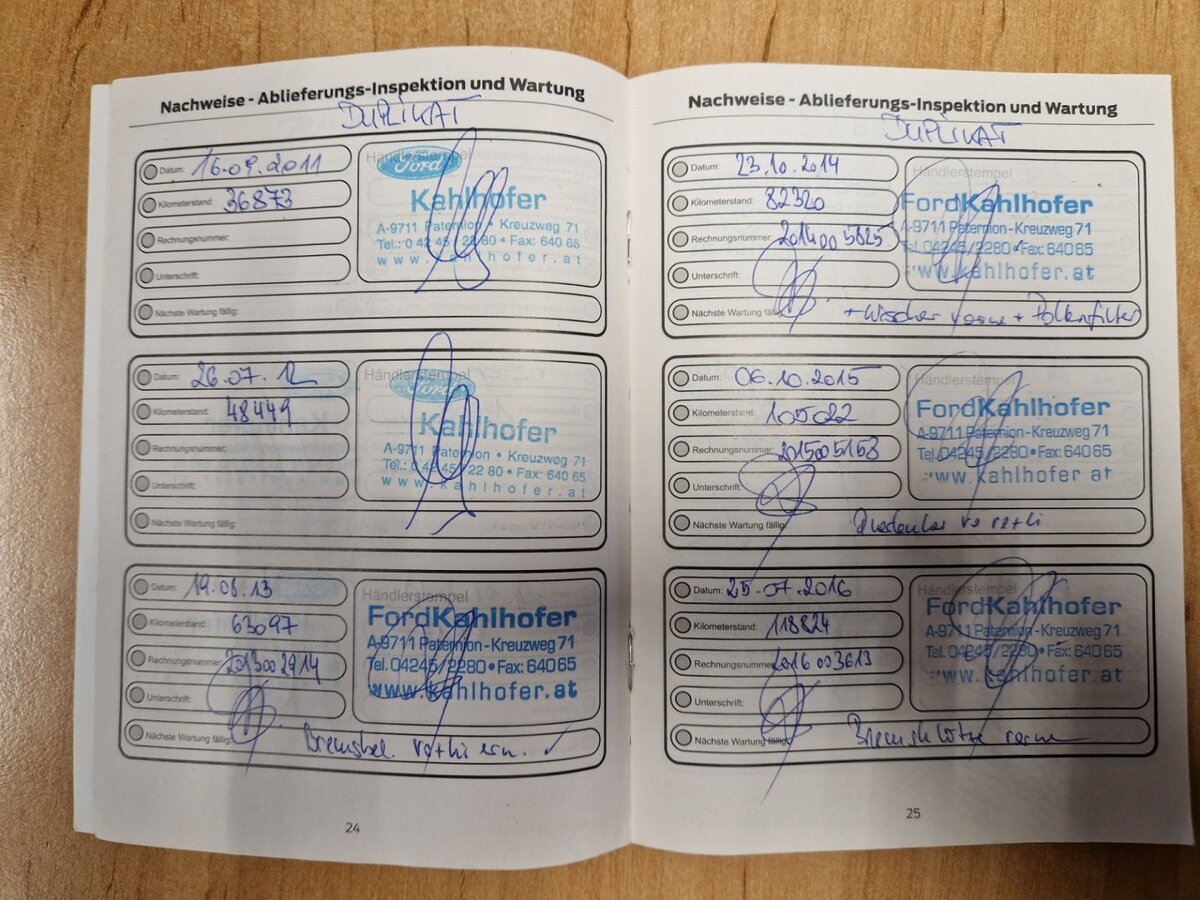 Nachweise - Ablieferungs-Inspektion und Wartung
DUPLIKAT
Datum: 16.09.2011
Kilometerstand: 36873
Rechnungsnummer:
Unterschrift:
Nächste Wartung fällig:
Händlerstempel
Ford
Kahlhofer
A-9711 Paternion • Kreuzweg 71
Tel.: 0 42 45 / 22 80 • Fax: 640 65
www.kahlhofer.at
Datum: 26.07.12
Kilometerstand: 48449
Rechnungsnummer:
Unterschrift:
Nächste Wartung fällig:
Händlerstempel
Ford
Kahlhofer
A-9711 Paternion • Kreuzweg 71
Tel.: 0 42 45 / 22 80 • Fax: 640 65
www.kahlhofer.at
Datum: 19.08.13
Kilometerstand: 63097
Rechnungsnummer: 2013002914
Unterschrift:
Nächste Wartung fällig:
Händlerstempel
FordKahlhofer
A-9711 Paternion-Kreuzweg 71
Tel. 04245/2280•Fax: 640 65
www.kahlhofer.at
24
Nachweise - Ablieferungs-Inspektion und Wartung
DUPLIKAT
Datum: 23.10.2014
Kilometerstand: 82320
Rechnungsnummer: 2014005825
Unterschrift:
Nächste Wartung fällig: + Wischer vorne + Pollenfilter
Händlerstempel
FordKahlhofer
A-9711 Paternion-Kreuzweg 71
Tel. 04245/2280•Fax: 640 65
www.kahlhofer.at
Datum: 06.10.2015
Kilometerstand: 105022
Rechnungsnummer: 2015005158
Unterschrift:
Nächste Wartung fällig:
Händlerstempel
FordKahlhofer
A-9711 Paternion-Kreuzweg 71
Tel. 04245/2280•Fax: 640 65
www.kahlhofer.at
Datum: 25.07.2016
Kilometerstand: 118824
Rechnungsnummer: 2016003613
Unterschrift:
Nächste Wartung fällig: Bremsklötze vorne
Händlerstempel
FordKahlhofer
A-9711 Paternion-Kreuzweg 71
Tel. 04245/2280•Fax: 640 65
www.kahlhofer.at
25